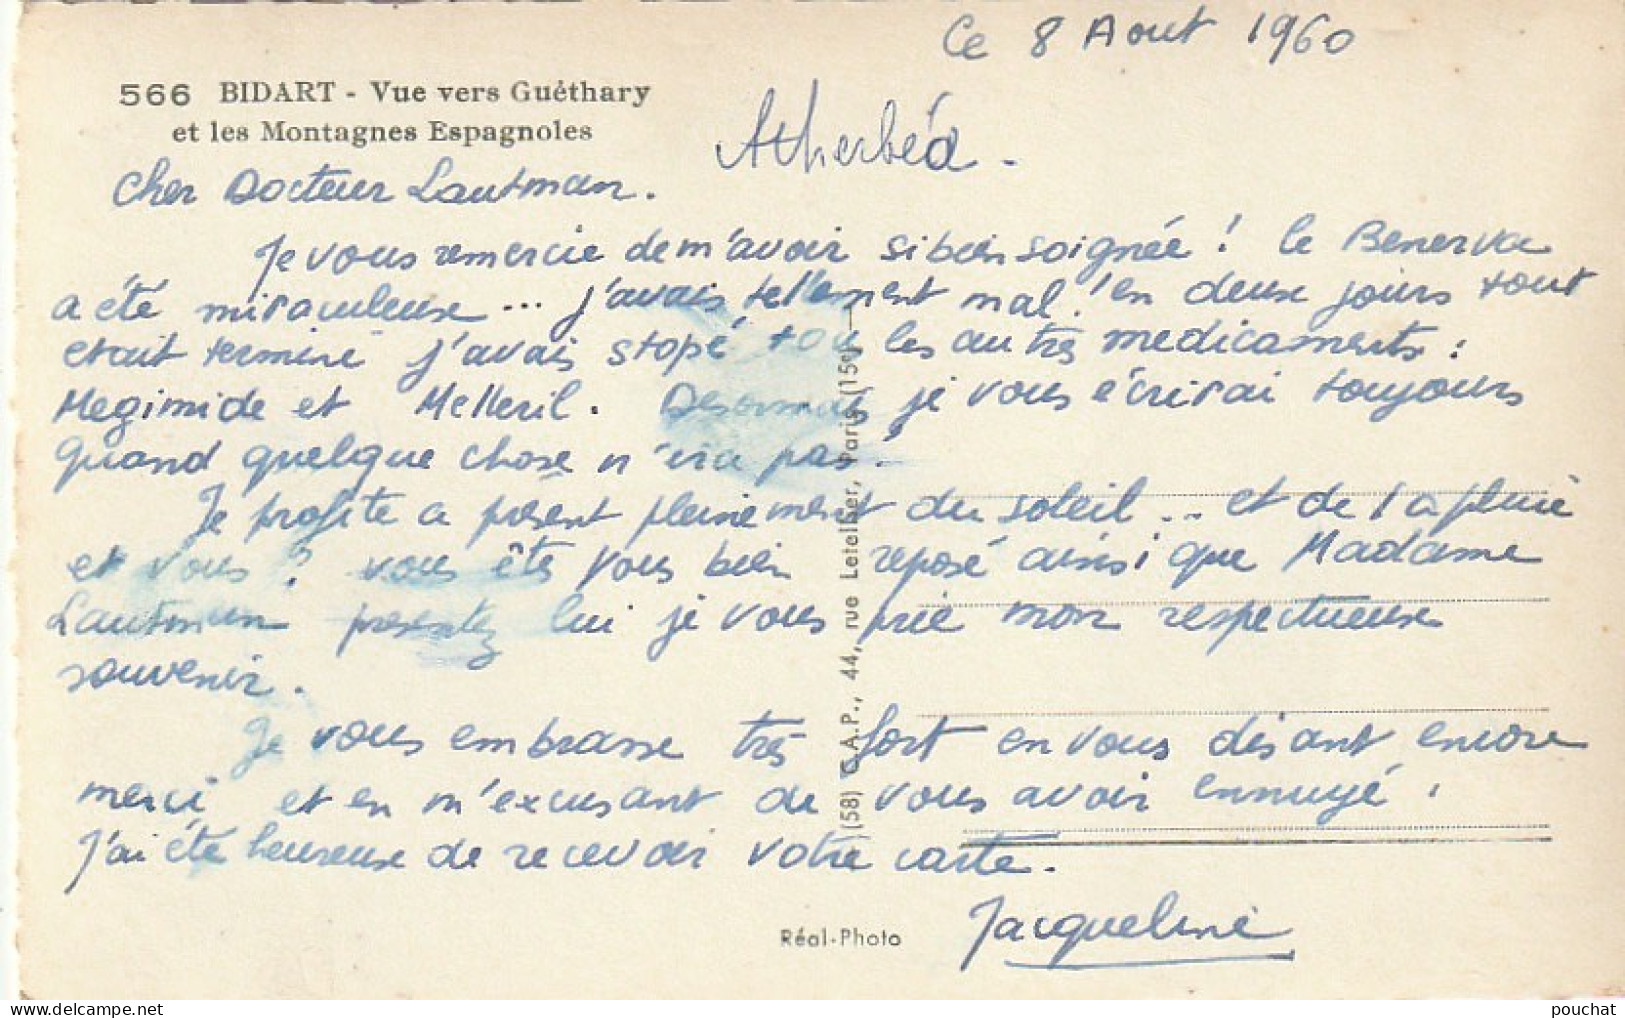 Ce 8 Aout 1960
566 BIDART - Vue vers Guéthary
et les Montagnes Espagnoles
Atherbéa.
Cher Docteur Lautman.
Je vous remercie de m'avoir si bien soignée ! le Benerva
a été miraculeuse... j'avais tellement mal ! en deux jours tout
etait terminé j'avais stopé tou les autres medicaments :
Megimide et Melleril. Desormais je vous écrirai toujours
quand quelque chose n'ira pas.
Je profite a présent pleinement du soleil... et de la pluie
et vous ? vous êtes vous bien reposé ainsi que Madame
Lautman presentez lui je vous prie mon respectueux
souvenir.
Je vous embrasse très fort en vous disant encore
merci et en m'excusant de vous avoir ennuyé.
J'ai été heureuse de recevoir votre carte.
Jacqueline
Réal-Photo
(58) C.A.P., 44, rue Letellier, Paris (15e)
pouchat